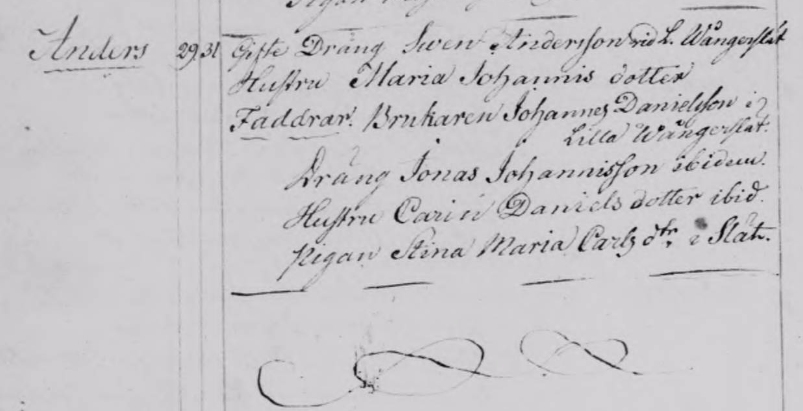 Anders 29 31 Gifte Dräng Swen Andersson vid L. Wångerslät
Hustru Maria Johannis dotter
Faddrar. Brukaren Johannes Danielsson i
Lilla Wångerslät.
Dräng Jonas Johannisson ibidem.
Hustru Carin Daniels dotter ibid.
Pigan Stina Maria Carls dtr. i Slät.